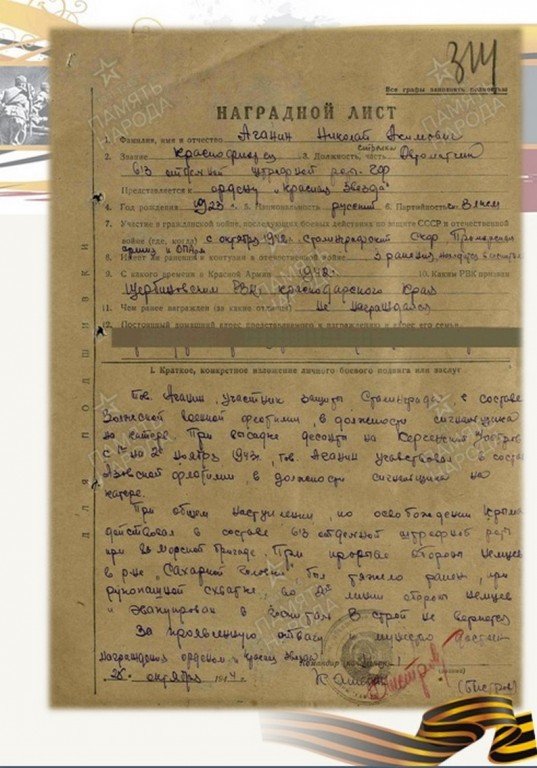 314
Все графы заполнять полностью
НАГРАДНОЙ ЛИСТ
1. Фамилия, имя и отчество Аганин Николай Акимович
2. Звание Краснофлотец 3. Должность, часть стрелок
613 отдельной штрафной роты ЧФ
Представляется к ордену „Красная Звезда"
4. Год рождения 1923 5. Национальность русский 6. Партийность с-
7. Участие в гражданской войне, последующих боевых действиях по защите СССР и отечественной
войне (где, когда) с октября 1942 г. Сталинградский Приморская
армия и
8. Имеет ли ранения и контузии в отечественной войне 3 ранения
9. С какого времени в Красной Армии 1942 г. 10. Каким РВК призван
Щербиновским РВК Краснодарского Края
11. Чем ранее награжден (за какие отличия) Не награждался
12. Постоянный домашний адрес представляемого к награждению и адрес его семьи
I. Краткое, конкретное изложение личного боевого подвига или заслуг
Тов. Аганин, участник защиты Сталинграда, в составе
Волжской военной флотилии, в должности сигнальщика
на катере. При высадке десанта на Керченский
с 1 на 2 ноября 1943 г., тов. Аганин участвовал в составе
Азовской флотилии, в должности сигнальщика на
катере.
При общем наступлении, по освобождении Крыма
действовал в составе 613 отдельной штрафной роты
при морской бригаде. При прорыве обороны немцев
в р-не „Сахарной Головки" был тяжело ранен, при
рукопашной схватке, во 2й линии обороны немцев
и эвакуирован в госпиталь. В строй не вернулся
За проявленную отвагу и мужество достоин
награждения орденом „Красная Звезда"
Командир
28 октября 1944 г.
(Быстров)
для подшивки
ПАМЯТЬ НАРОДА